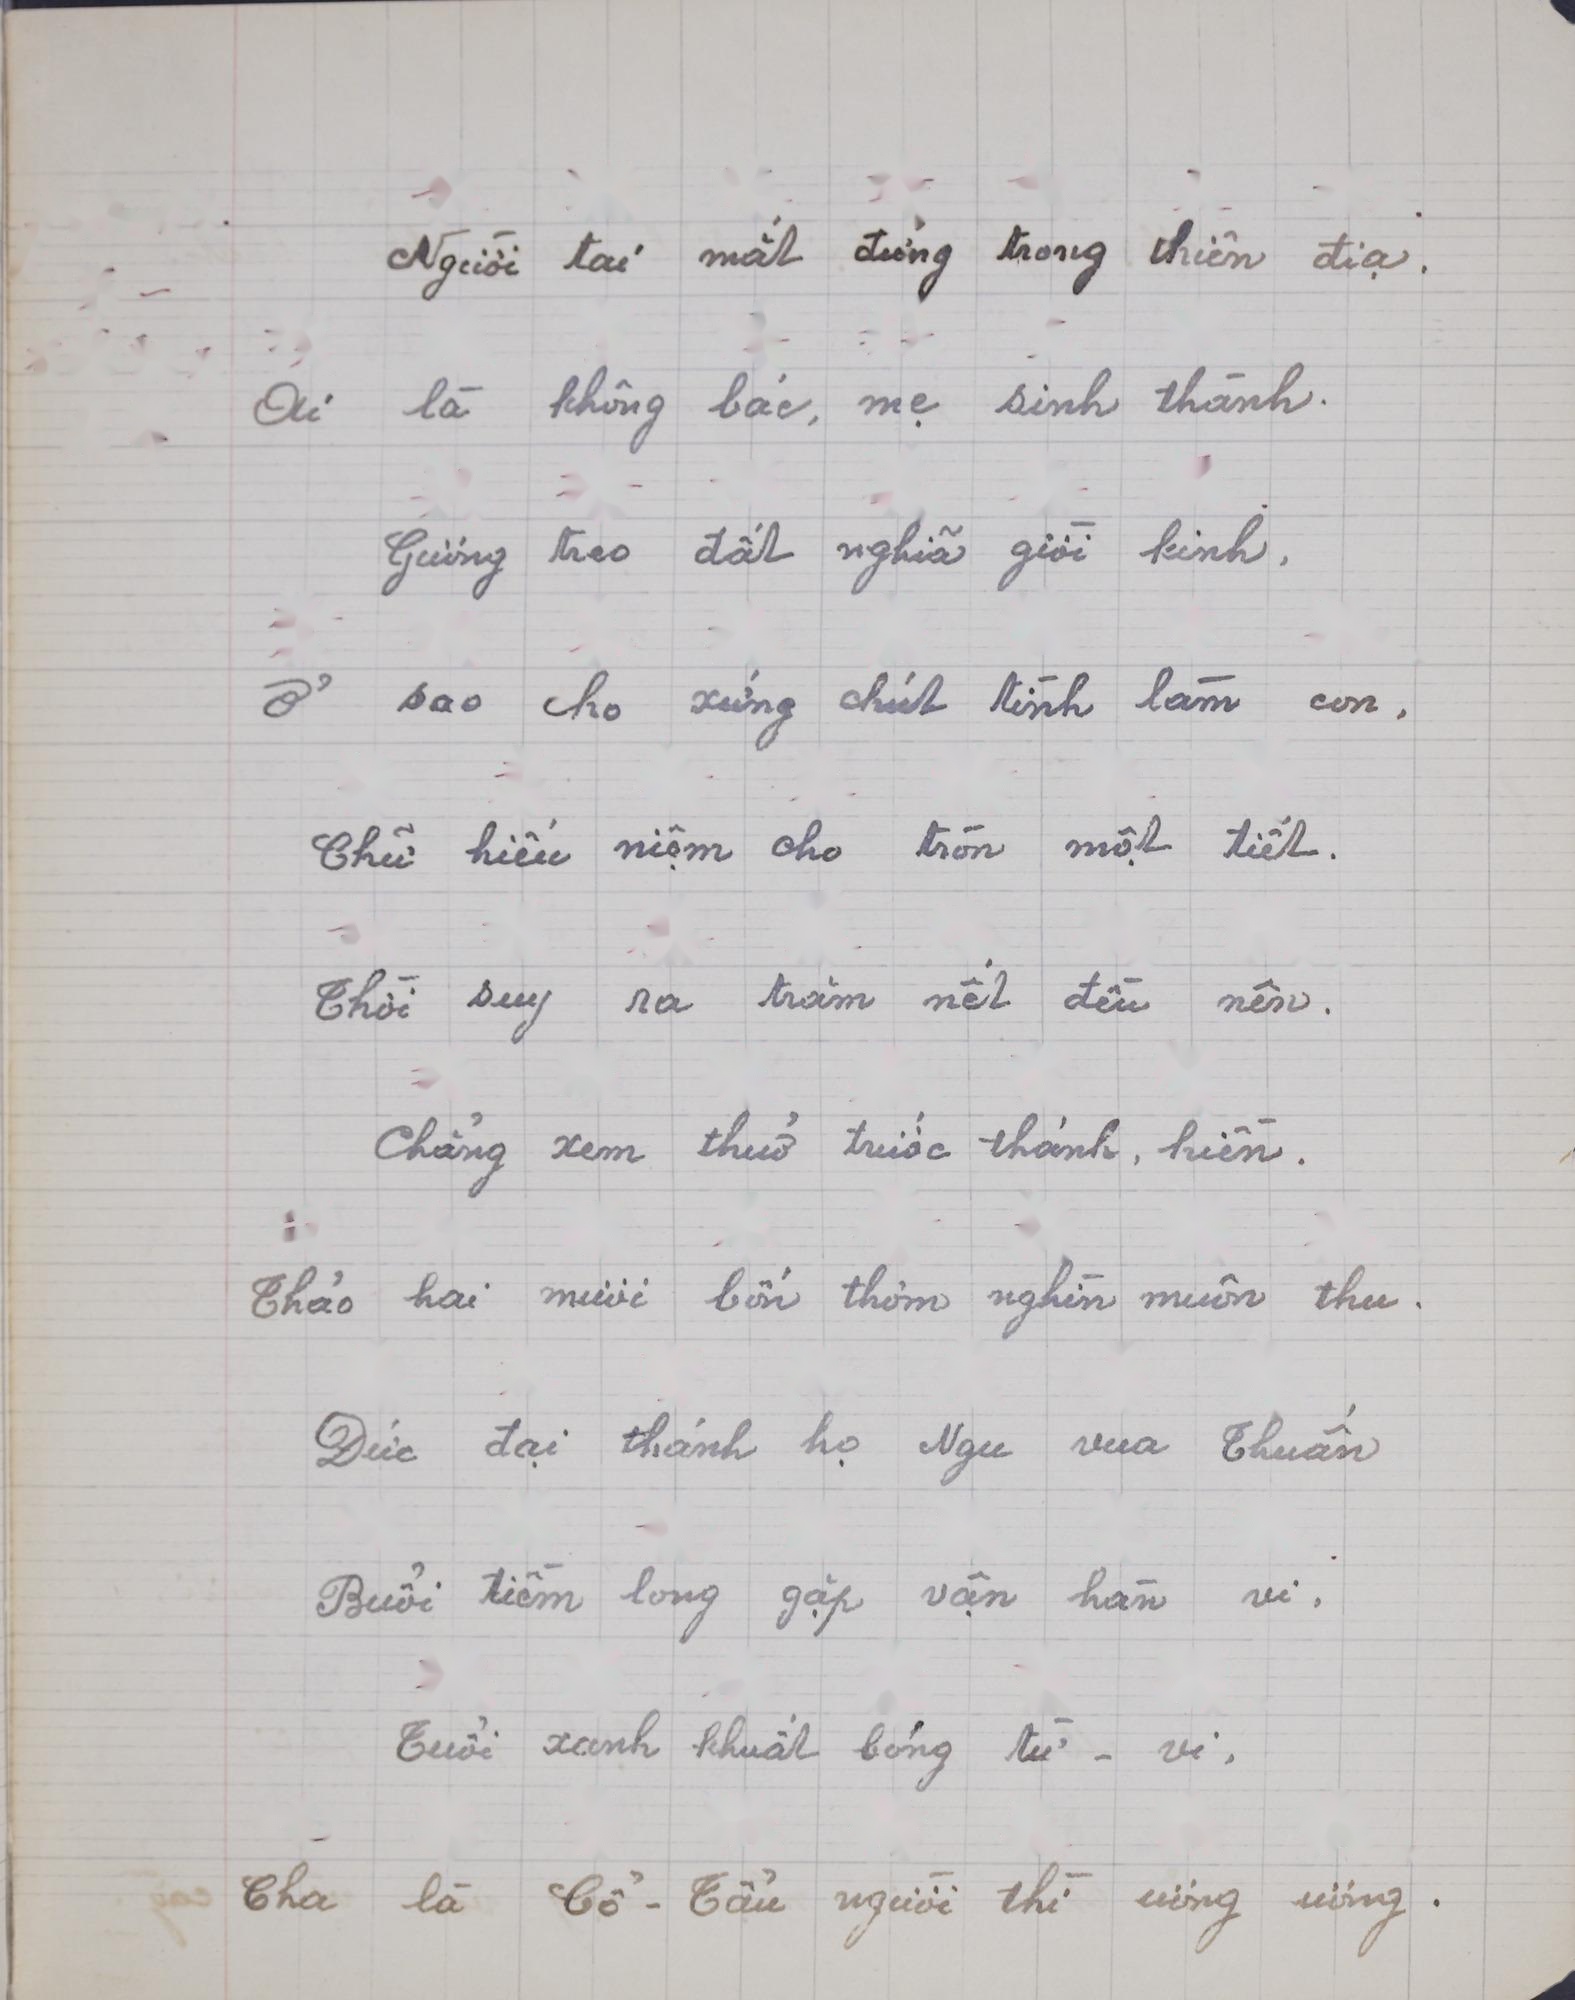 Người tai mắt đứng trong thiên địa.
Ai là không bác, mẹ sinh thành.
Gương treo đất nghĩa giời kinh,
Ở sao cho xứng chút tình làm con,
Chữ hiếu niệm cho tròn một tiết.
Thời suy ra trăm nết đều nên.
Chẳng xem thuở trước thánh, hiền.
Thảo hai mươi bốn thơm nghìn muôn thu.
Đức đại thánh họ Ngu vua Thuấn
Buổi tiềm long gặp vận hàn vi,
Tuổi xanh khuất bóng từ - vi,
Cha là Cổ - Tẩu người thì ương ương.